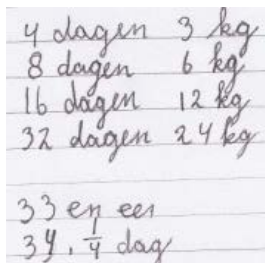 4 dagen 3 kg
8 dagen 6 kg
16 dagen 12 kg
32 dagen 24 kg
33 en een
34, 1/4 dag